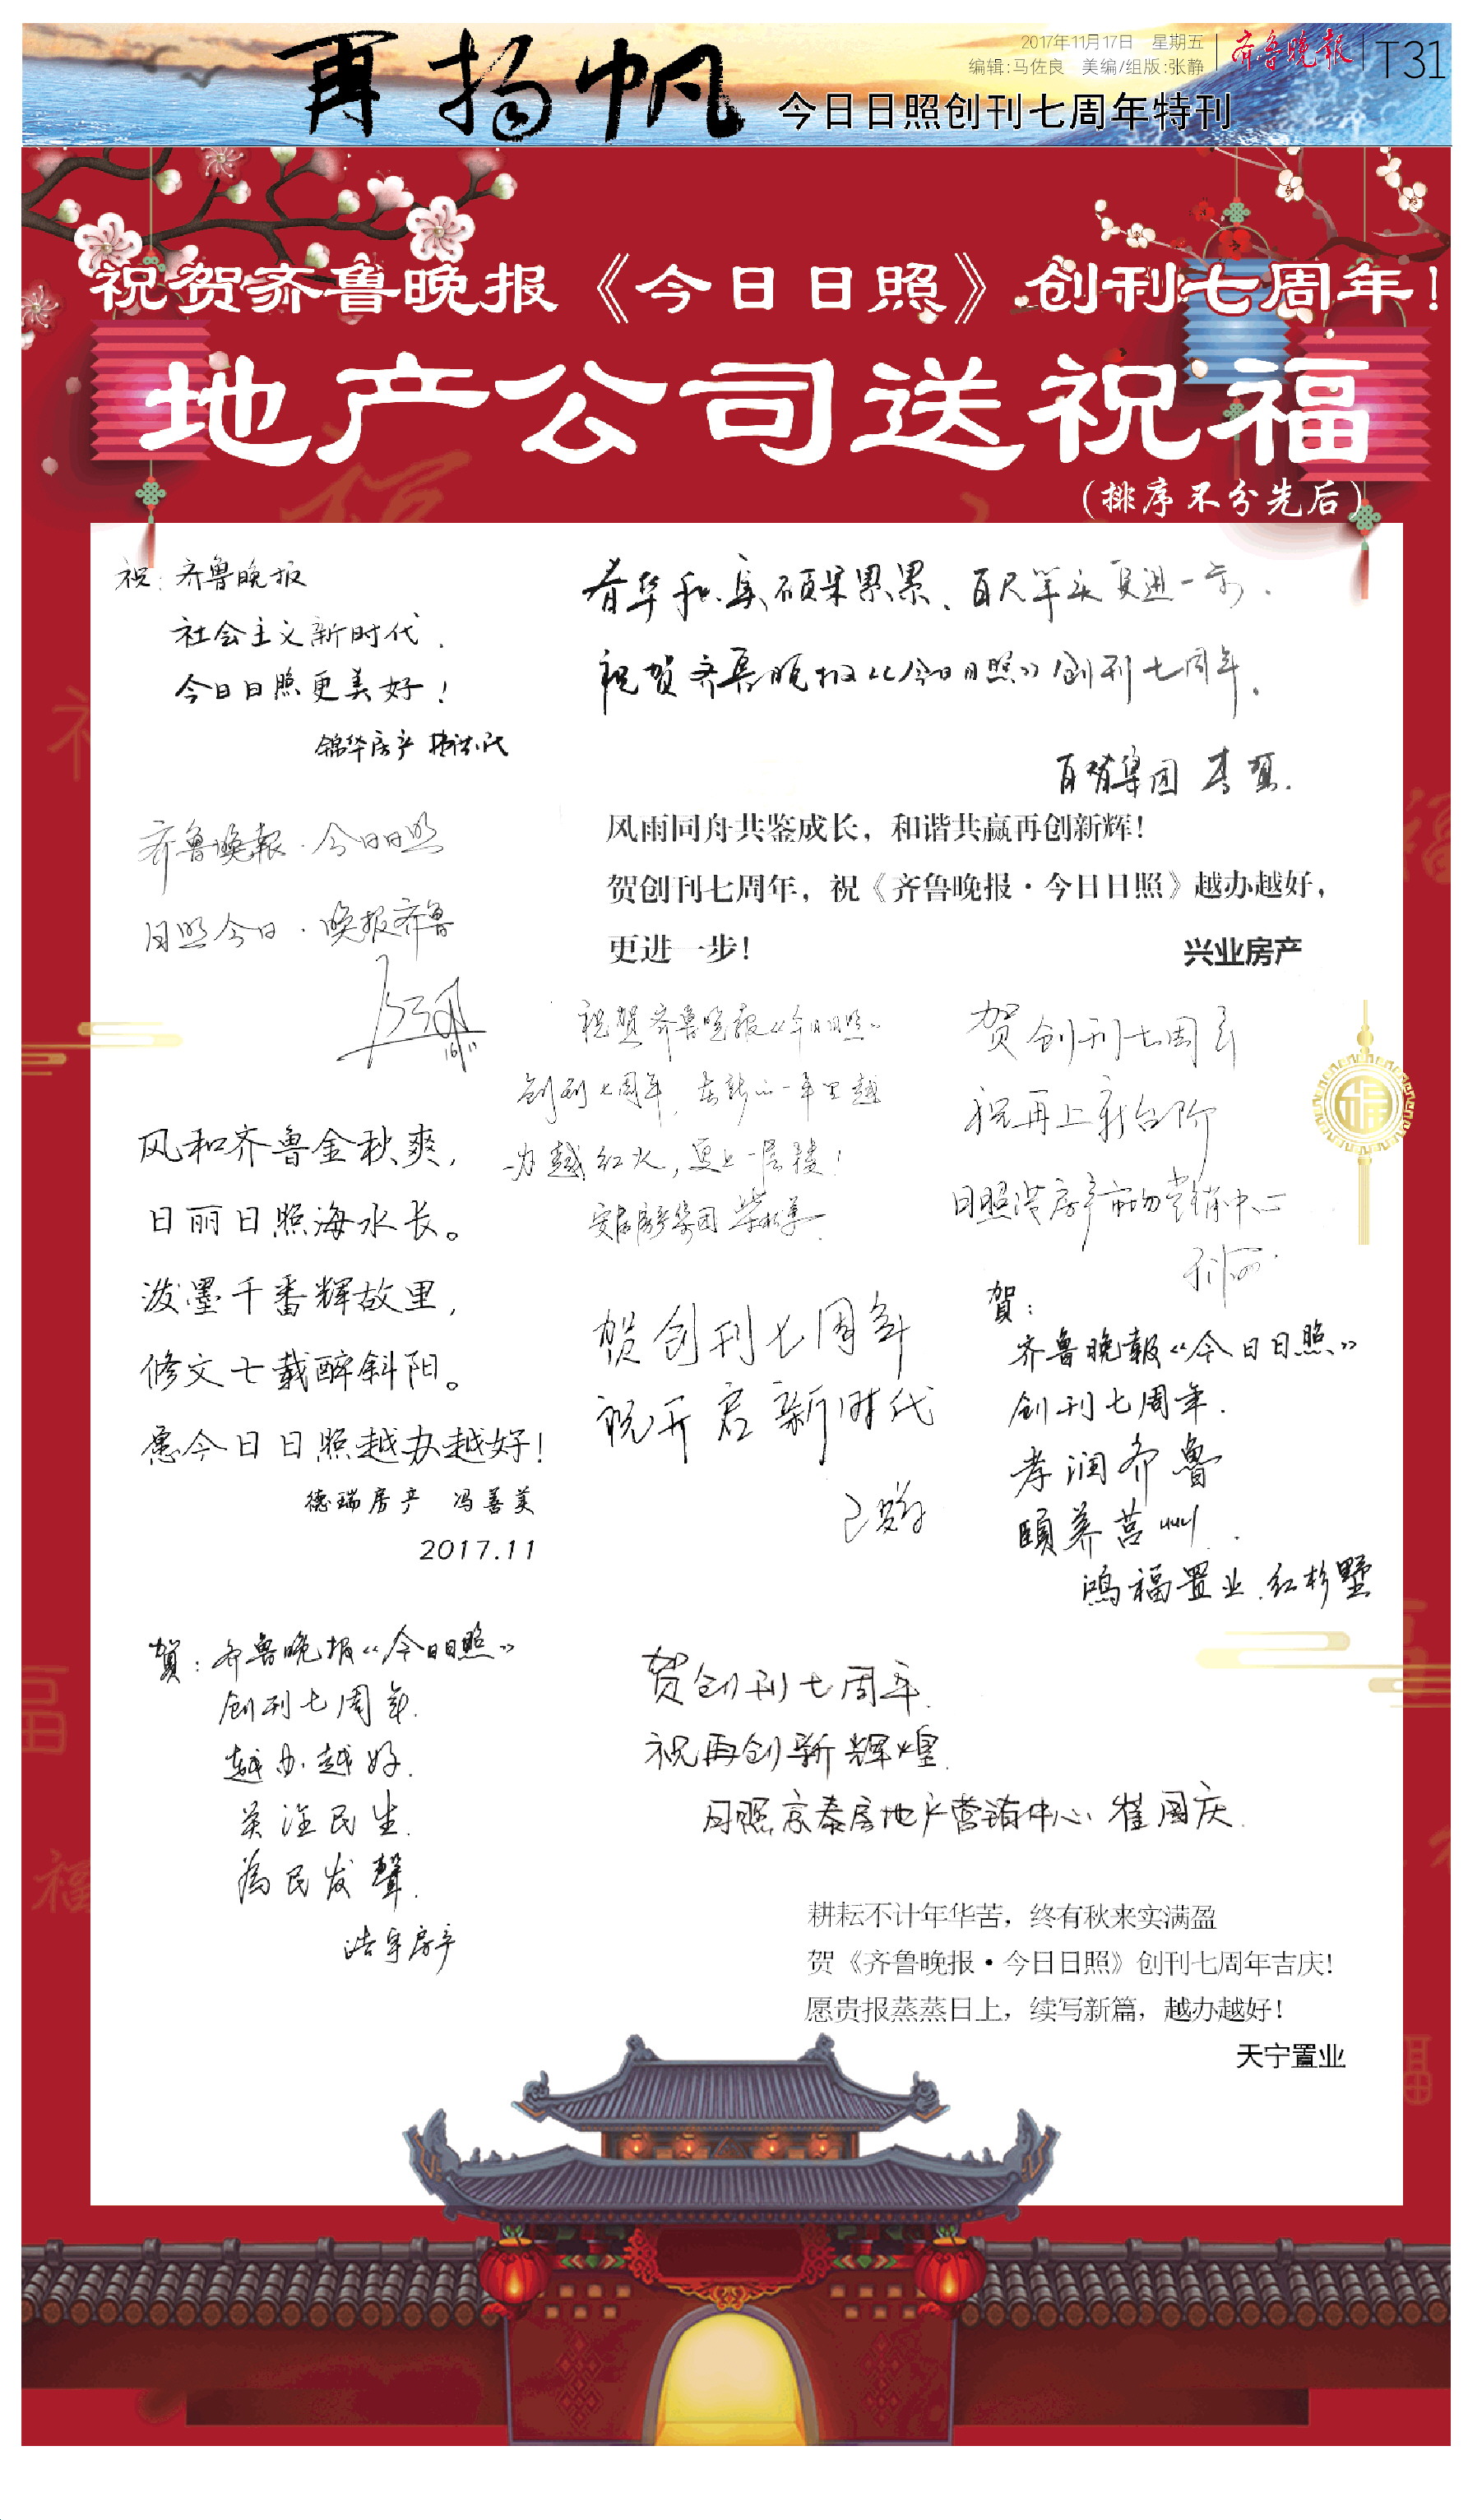 再扬帆
今日日照创刊七周年特刊
2017年11月17日 星期五
编辑:马佐良 美编/组版:张静
齐鲁晚报
T31
祝贺齐鲁晚报《今日日照》创刊七周年!
地产公司送祝福
(排序不分先后)
祝:齐鲁晚报
社会主义新时代.
今日日照更美好!
锦华房产
春华秋实硕果累累、百尺竿头更进一步.
祝贺齐鲁晚报《今日日照》创刊七周年.
集团 李
齐鲁晚報·今日日照
日照今日·晚报齐鲁
16/11
风雨同舟共鉴成长,和谐共赢再创新辉!
贺创刊七周年,祝《齐鲁晚报·今日日照》越办越好,
更进一步!
兴业房产
祝贺齐鲁晚报《今日日照》
创刊七周年,在新的一年里越
办越红火,更上一层楼!
安居房产集团
贺创刊七周年
祝再上新台阶
日照港房产营销中心
风和齐鲁金秋爽,
日丽日照海水长。
泼墨千番辉故里,
修文七载醉斜阳。
愿今日日照越办越好!
德瑞房产 冯善美
2017.11
贺创刊七周年
祝开启新时代
賀:
齐鲁晚報《今日日照》
创刊七周年.
孝润齐魯
頤养莒州.
鸿福置业.红杉墅
賀:齐鲁晚报《今日日照》
创刊七周年.
越办越好.
关注民生.
為民发聲.
浩宇房产
贺创刊七周年.
祝再创新辉煌.
日照京泰房地产营销中心 崔国庆.
耕耘不计年华苦,终有秋来实满盈
贺《齐鲁晚报·今日日照》创刊七周年吉庆!
愿贵报蒸蒸日上,续写新篇,越办越好!
天宁置业